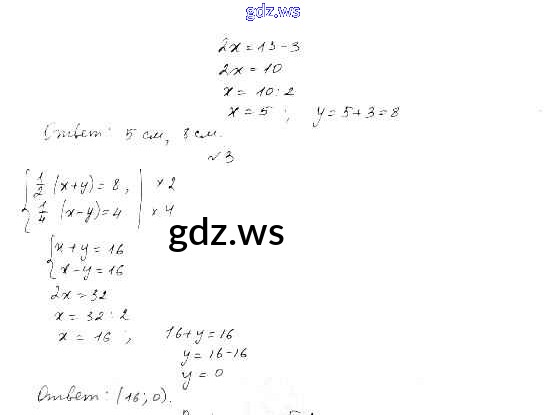 gdz.ws
2x = 13 - 3
2x = 10
x = 10 : 2
x = 5 ; y = 5 + 3 = 8
Ответ: 5 см, 8 см.
№3
{ 1/2 (x+y) = 8, | × 2
{ 1/4 (x-y) = 4 | × 4
{ x + y = 16
{ x - y = 16
gdz.ws
2x = 32
x = 32 : 2
x = 16 ; 16 + y = 16
y = 16 - 16
y = 0
Ответ: (16; 0).